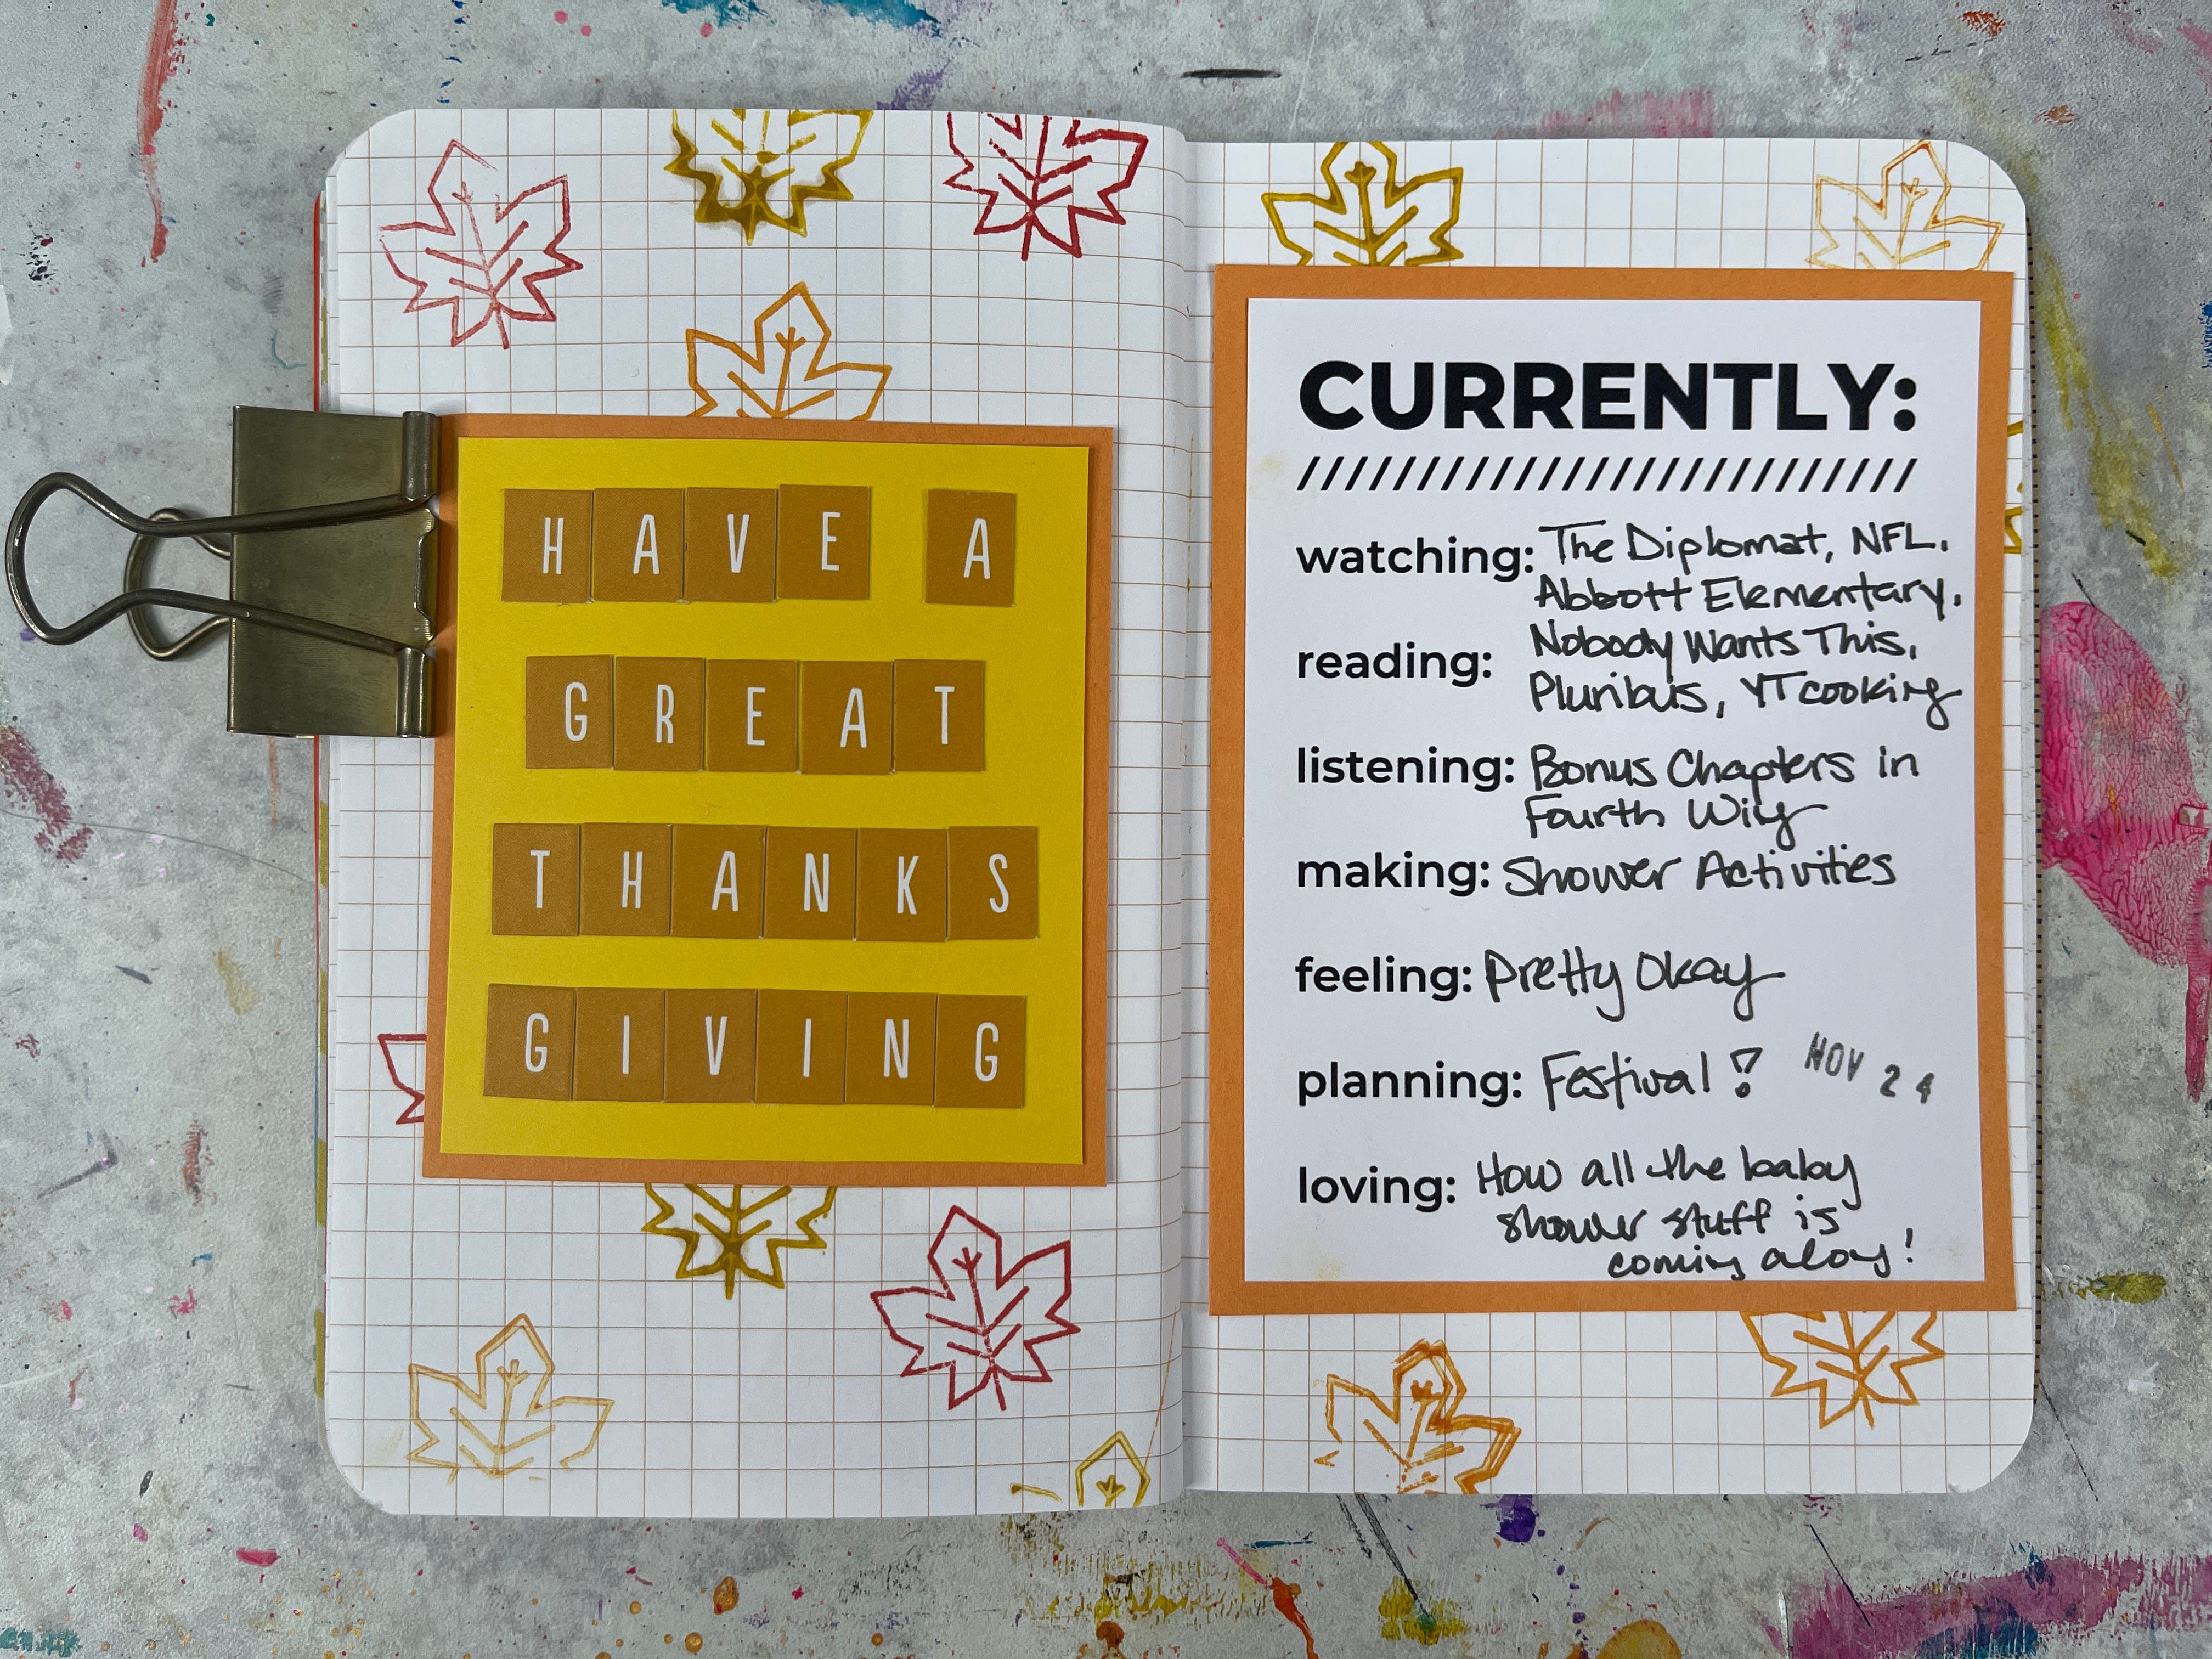 HAVE A
GREAT
THANKS
GIVING
CURRENTLY:
////////////////////////////
watching: The Diplomat, NFL,
Abbott Elementary,
reading: Nobody Wants This,
Pluribus, YT cooking
listening: Bonus Chapters in
Fourth Wing
making: Shower Activities
feeling: Pretty Okay
planning: Festival? NOV 24
loving: How all the baby
shower stuff is
coming along!